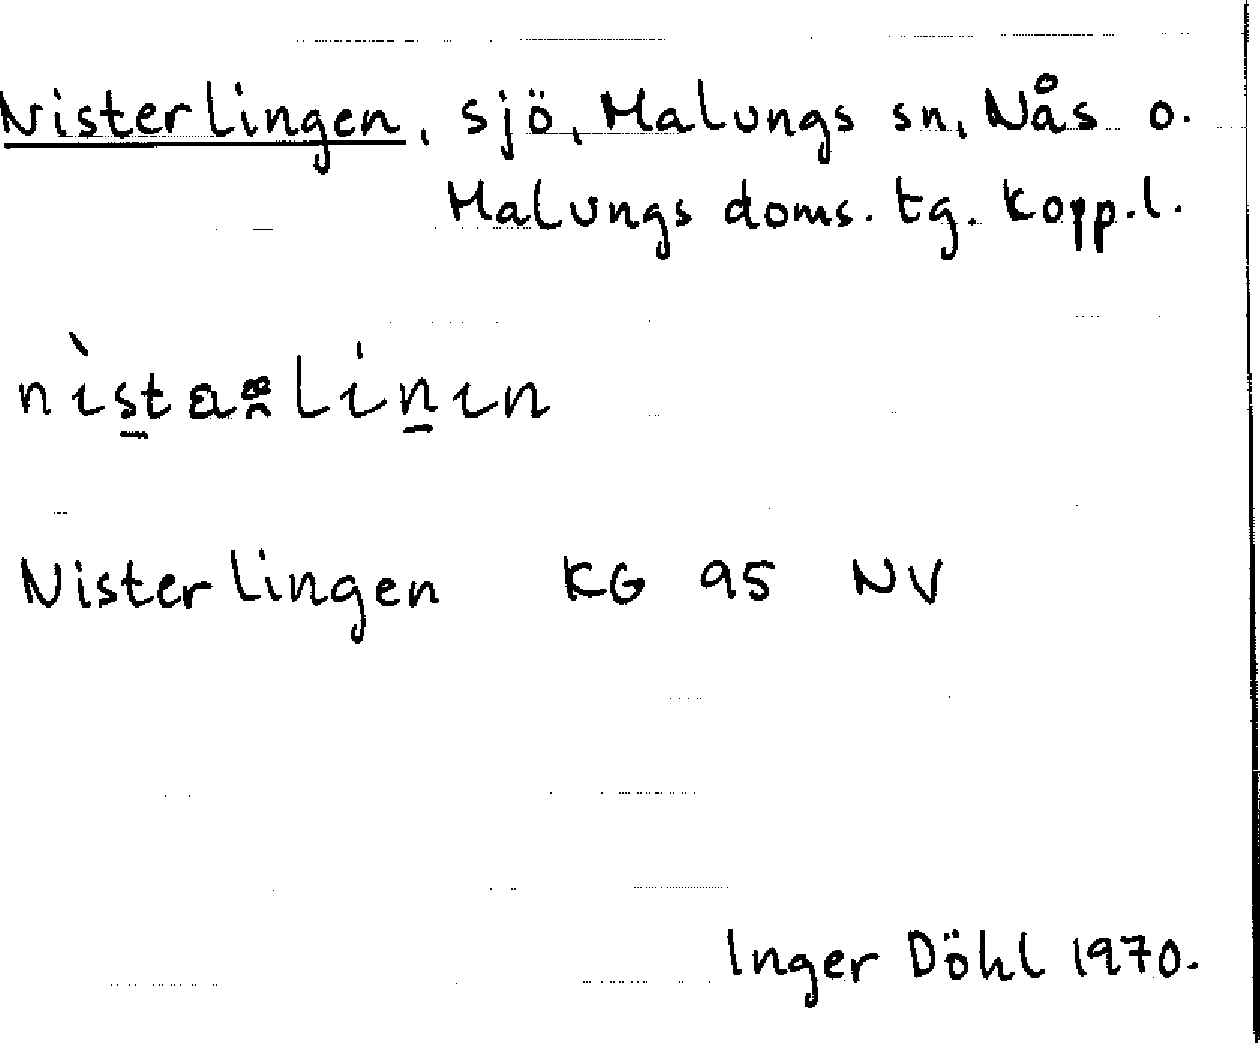 Nisterlingen, sjö, Malungs sn, Nås o.
Malungs doms. tg. Kopp.l.
Nisterlingen KG 95 NV
Inger Döhl 1970.